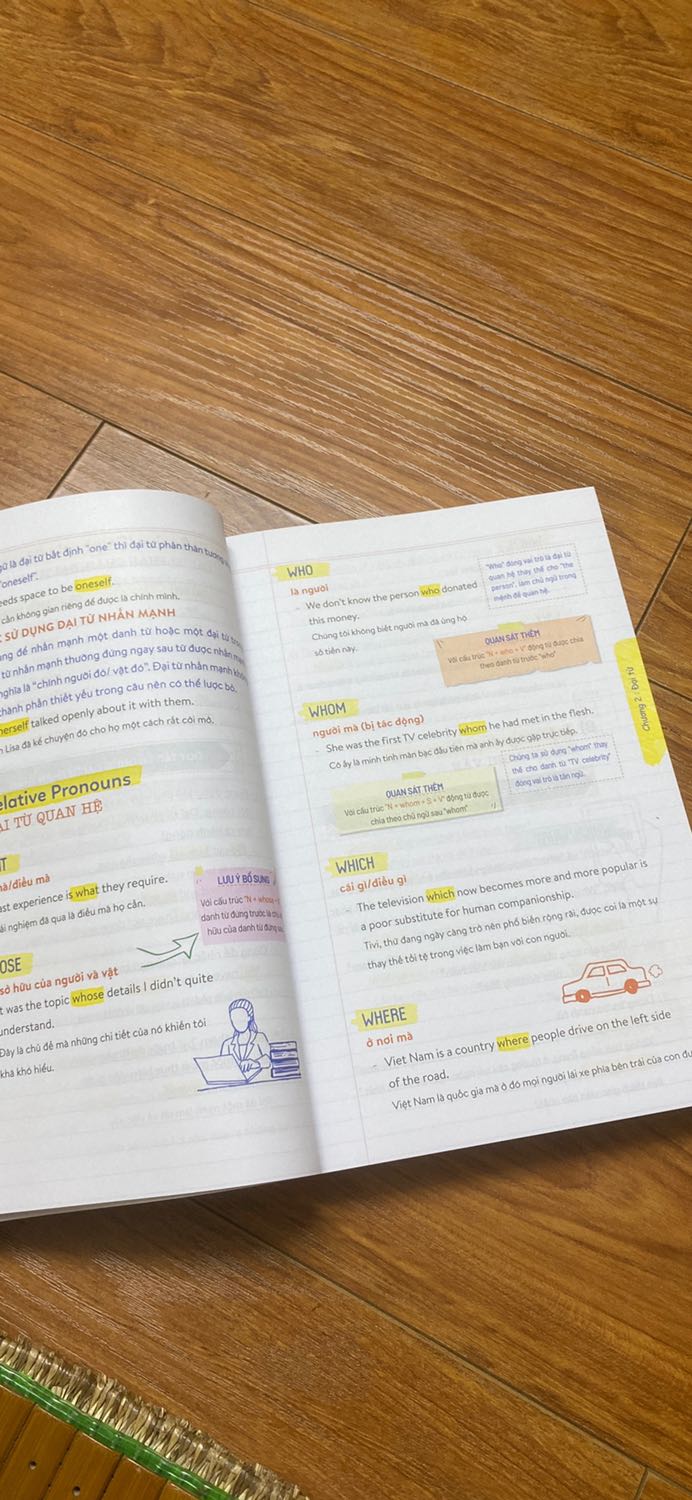 ữ là đại từ bất định "one" thì đại từ phản thân tương
"oneself".
eeds space to be oneself.
cần không gian riêng để được là chính mình.
SỬ DỤNG ĐẠI TỪ NHẤN MẠNH
ng để nhấn mạnh một danh từ hoặc một đại từ
từ nhấn mạnh thường đứng ngay sau từ được nhấn
nghĩa là "chính người đó/ vật đó". Đại từ nhấn mạnh
thành phần thiết yếu trong câu nên có thể lược bỏ.
herself talked openly about it with them.
Lisa đã kể chuyện đó cho họ một cách rất cởi mở.
elative Pronouns
ẠI TỪ QUAN HỆ
à/điều mà
ast experience is what they require.
ải nghiệm đã qua là điều mà họ cần.
LƯU Ý BỔ SUNG
Với cấu trúc "N + whose
danh từ đứng trước là
hữu của danh từ đứng
OSE
sở hữu của người và vật
t was the topic whose details I didn't quite
understand.
Đây là chủ đề mà những chi tiết của nó khiến tôi
khá khó hiểu.
WHO
là người
- We don't know the person who donated
this money.
Chúng tôi không biết người mà đã ủng hộ
số tiền này.
"Who" đóng vai trò là đại từ
quan hệ thay thế cho "the
person", làm chủ ngữ trong
mệnh đề quan hệ.
QUAN SÁT THÊM
Với cấu trúc "N + who + V" động từ được chia
theo danh từ trước "who"
WHOM
người mà (bị tác động)
- She was the first TV celebrity whom he had met in the flesh.
Cô ấy là minh tinh màn bạc đầu tiên mà anh ấy được gặp trực tiếp.
QUAN SÁT THÊM
Với cấu trúc "N + whom + S + V" động từ được
chia theo chủ ngữ sau "whom"
Chúng ta sử dụng "whom" thay
thế cho danh từ "TV celebrity"
đóng vai trò là tân ngữ.
WHICH
cái gì/điều gì
- The television which now becomes more and more popular is
a poor substitute for human companionship.
Tivi, thứ đang ngày càng trở nên phổ biến rộng rãi, được coi là một sự
thay thế tồi tệ trong việc làm bạn với con người.
WHERE
ở nơi mà
- Viet Nam is a country where people drive on the left side
of the road.
Việt Nam là quốc gia mà ở đó mọi người lái xe phía bên trái của con đư
Chương 2 : Đại từ